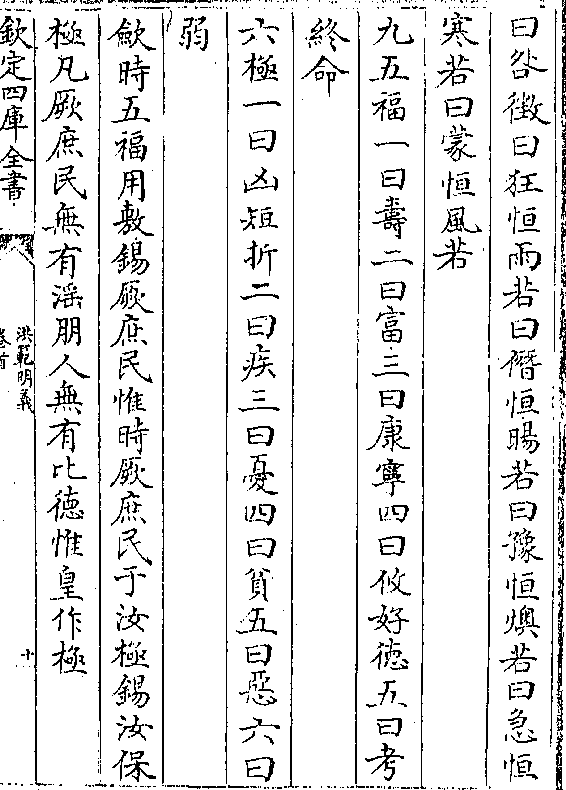 曰咎徴曰狂恒雨若曰僭恒暘若曰豫恒燠若曰急恒
寒若曰蒙恒風若
九五福一曰壽二曰富三曰康寧四曰攸好德五曰考
終命
六極一曰凶短折二曰疾三曰憂四曰貧五曰惡六曰
弱
歛時五福用敷錫厥庶民惟時厥庶民于汝極錫汝保
極凡厥庶民無有滛朋人無有比德惟皇作極
欽定四庫全書
洪範明義
卷首
十